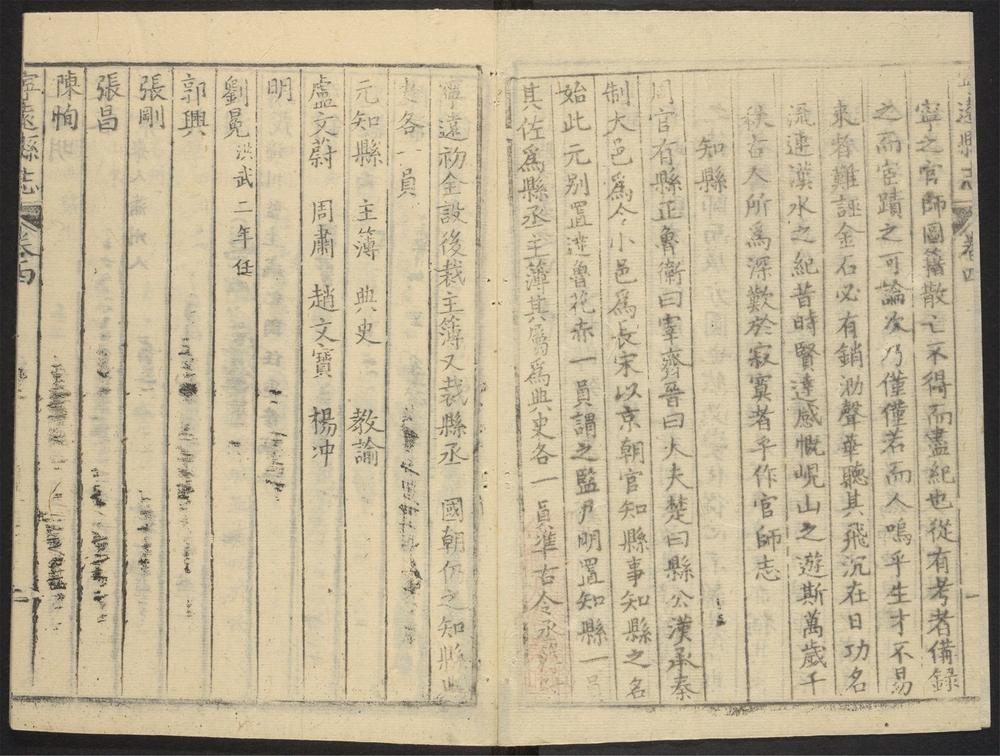 遠縣志 卷四 一
寧之官師圖籍散亡不得而盡紀也從有考者備錄
之而宦蹟之可論次乃僅僅若而人嗚乎生才不易
來者難誣金石必有銷泐聲華聽其飛沉在日功名
流連漢水之紀昔時賢達感慨峴山之遊斯萬歲千
秋古人所為深歎於寂寞者乎作官師志
知縣
周官有縣正魯衛曰宰齊晉曰大夫楚曰縣公漢承秦
制大邑為令小邑為長宋以京朝官知縣事知縣之名
始此元別置達魯花赤一員謂之監尹明置知縣一員
其佐為縣丞主薄其屬為典史各一員準古令丞
寧遠初全設後裁主簿又裁縣丞 國朝仍之知縣典
史各一員
元知縣 主簿 典史 教諭
盧文蔚 周肅 趙文寶 楊冲
明
劉冕 洪武二年任
郭興
張剛
張昌
陳恂
寧遠縣志 卷四